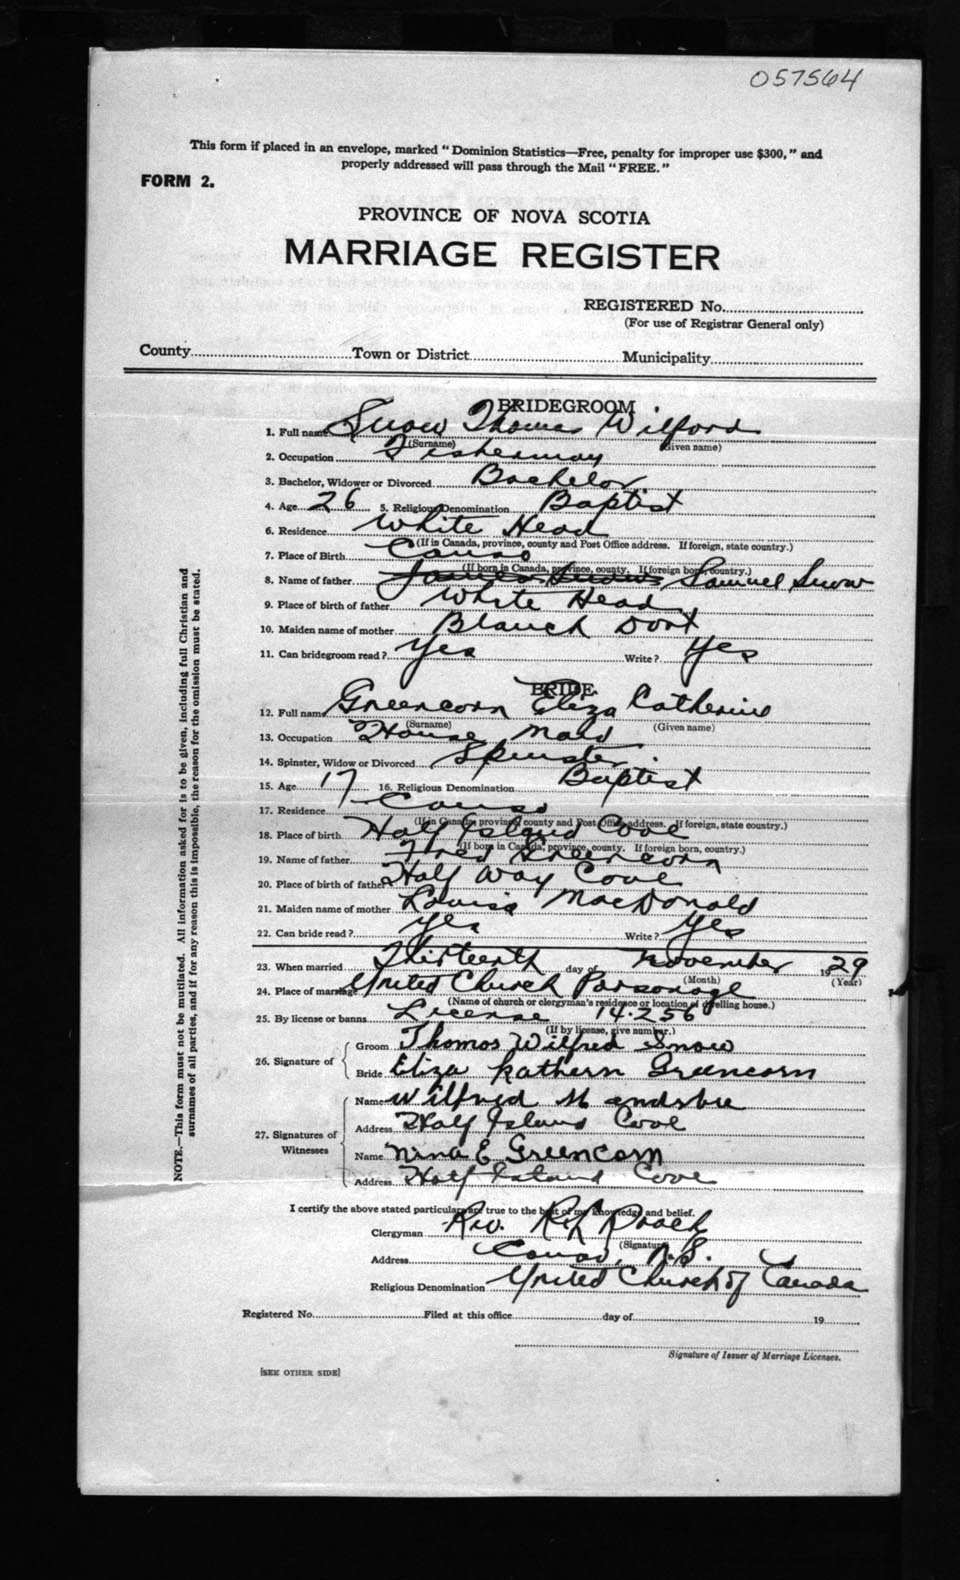 057564
This form if placed in an envelope, marked " Dominion Statistics—Free, penalty for improper use $300, " and
properly addressed will pass through the Mail " FREE. "
FORM 2.
PROVINCE OF NOVA SCOTIA
MARRIAGE REGISTER
REGISTERED No.
(For use of Registrar General only)
County Town or District Municipality
BRIDEGROOM
1. Full name Snow Thomas Wilford
(Surname) (Given name)
2. Occupation Fisherman
3. Bachelor, Widower or Divorced Bachelor
4. Age 26 5. Religious Denomination Baptist
6. Residence White Head
(If in Canada, province, county and Post Office address. If foreign, state country.)
7. Place of Birth Canso
(If born in Canada, province, county. If foreign born, country.)
8. Name of father James Snow Samuel Snow
9. Place of birth of father White Head
10. Maiden name of mother Blanch Dort
11. Can bridegroom read ? Yes Write ? Yes
BRIDE
12. Full name Greencorn Eliza Catherine
(Surname) (Given name)
13. Occupation House Maid
14. Spinster, Widow or Divorced Spinster
15. Age 17 16. Religious Denomination Baptist
17. Residence Canso
(If in Canada, province, county and Post Office address. If foreign, state country.)
18. Place of birth Half Island Cove
(If born in Canada, province, county. If foreign born, country.)
19. Name of father Fred Greencorn
20. Place of birth of father Half Way Cove
21. Maiden name of mother Louisa MacDonald
22. Can bride read ? Yes Write ? Yes
23. When married Thirteenth day of November 1929
(Month) (Year)
24. Place of marriage United Church Parsonage
(Name of church or clergyman's residence or location of dwelling house.)
25. By license or banns License 14256
(If by license, give number.)
26. Signature of
Groom Thomas Wilfred Snow
Bride Eliza Kathern Greencorn
27. Signatures of Witnesses
Name Wilfred
Address Half Island Cove
Name Nina E Greencorn
Address Half Island Cove
I certify the above stated particulars are true to the best of my knowledge and belief.
Clergyman Rev.
(Signature)
Address Canso, N.S.
Religious Denomination United Church of Canada
Registered No. Filed at this office day of 19
Signature of Issuer of Marriage Licenses.
[SEE OTHER SIDE]
NOTE.—This form must not be mutilated. All information asked for is to be given, including full Christian and
surnames of all parties, and if for any reason this is impossible, the reason for the omission must be stated.